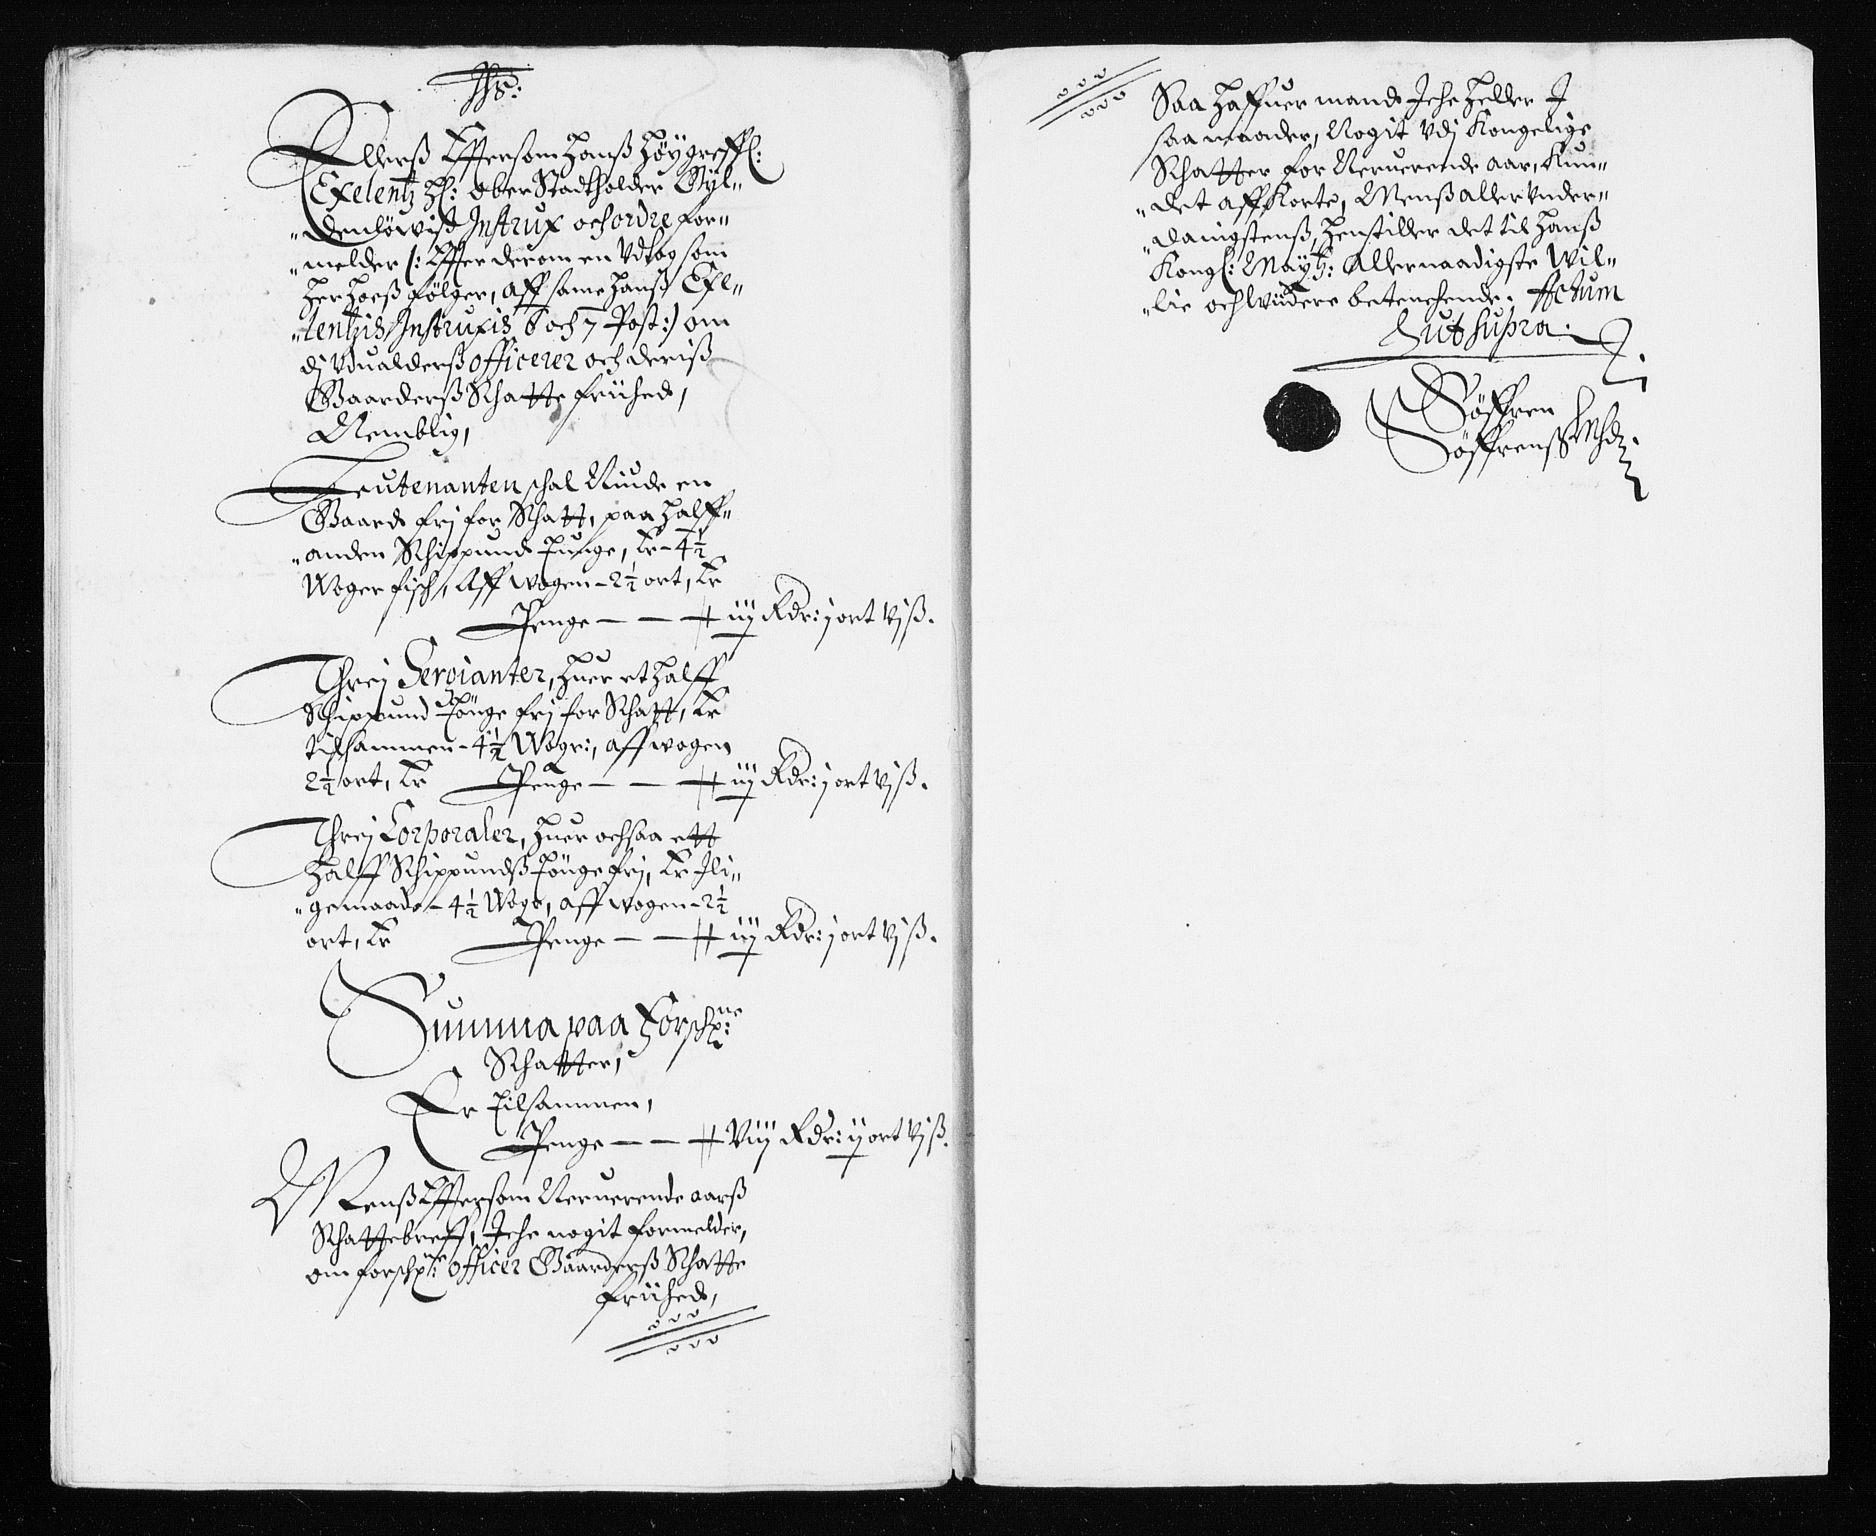 NB:
Ellerß Effersom hanß höÿgreffl:
Exelentz Hl: ober Stadtholder Gÿl-
"denlöwiß Instrux och ordre for-
"melder (: Effter derom en Udtog som
herhoeß fölger, aff same hanß Exl-
"lentzis Instruxis 6 och 7 Post:) om
dj Vdualderß officerer och deriß
Gaarderß Schatte friihed,
Nemblig,
Leutenanten schal Niude en
Gaard frj for Schatt, paa halff-
"anden Schippund tunge, Er - 4½
Woger fisch, Aff wogen - 2½ ort, Er
Penge — — iij Rdr: j ort vj ß.
Threj Servianter, huer et halff
Schippund töunge frj for Schatt, Er
tilsammen - 4½ Wogr:, aff wogen
2½ ort, Er Penge — — iij Rdr: j ort vj ß.
Threj Corporaler, huer ochsaa ett
halff Schippundß töunge frj, Er Jli-
"gemaade - 4½ Woge, aff wogen - 2½
ort, Er Penge — — iij Rdr: j ort vj ß.
Summa paa forschne:
Schatter,
Er Tilsammen,
Penge — — Viij Rdr: ij ort vj ß.
Menß Effersom Neruerende aarß
Schattebreff, Jche nogit formelder,
om forschne: officer Gaarderß Schatte
friihed,
Saa haffuer mand Jche heller J
saa maader, Nogit vdj Kongelige
Schatter for Neruerende aar, Kun-
"det affkorte, Menß aller vnder-
"danigstenß, henstiller det til hanß
Kongl: Maÿtz: Allernaadigste Wil-
"lie och widere betenchende. Actum
ut supra.
Söffren
Söffrenß